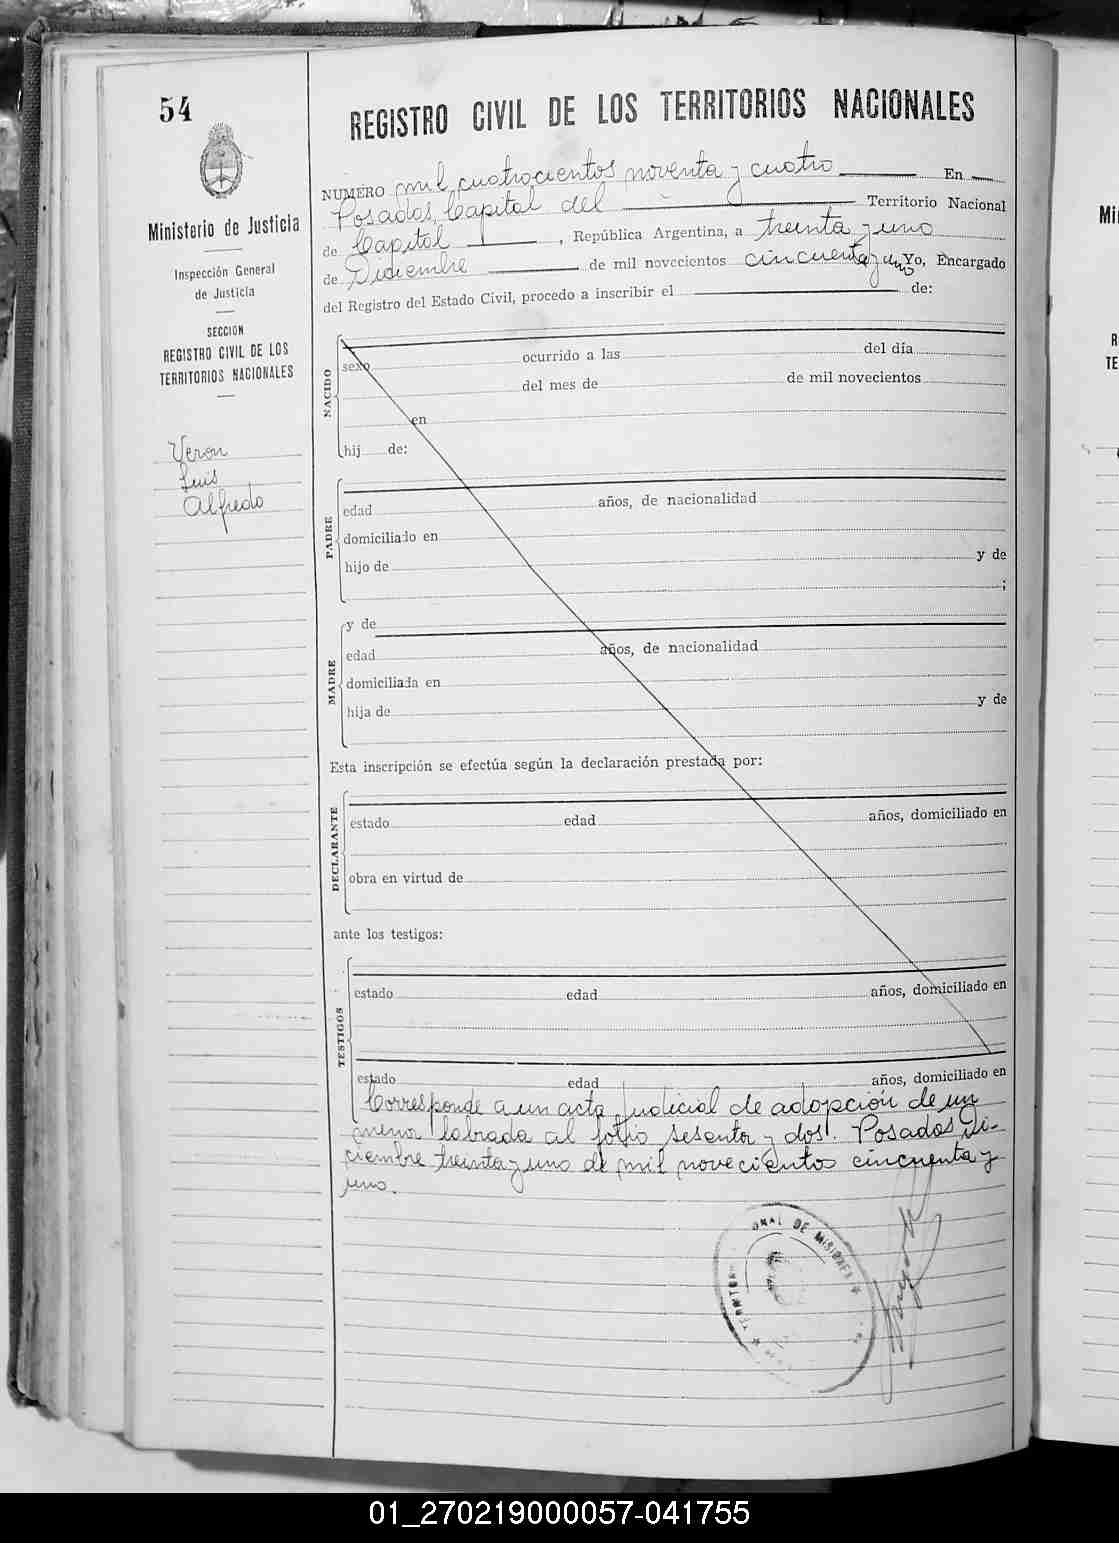 54
REGISTRO CIVIL DE LOS TERRITORIOS NACIONALES
Ministerio de Justicia
Inspección General
de Justicia
SECCION
REGISTRO CIVIL DE LOS
TERRITORIOS NACIONALES
Veron
Luis
Alfredo
NUMERO mil cuatrocientos noventa y cuatro En
Posadas, Capital del Territorio Nacional
de Capital, República Argentina, a treinta y uno
de Diciembre de mil novecientos cincuenta y uno Yo, Encargado
del Registro del Estado Civil, procedo a inscribir el de:
NACIDO
sexo ocurrido a las del día
del mes de de mil novecientos
en
hij de:
PADRE
edad años, de nacionalidad
domiciliado en
hijo de y de
;
MADRE
y de
edad años, de nacionalidad
domiciliada en
hija de y de
Esta inscripción se efectúa según la declaración prestada por:
DECLARANTE
estado edad años, domiciliado en
obra en virtud de
ante los testigos:
TESTIGOS
estado edad años, domiciliado en
estado edad años, domiciliado en
Corresponde a un acta judicial de adopción de un
menor labrada al folio sesenta y dos. Posadas Di-
ciembre treinta y uno de mil novecientos cincuenta y
uno.
DE MISIONES
01_270219000057-041755